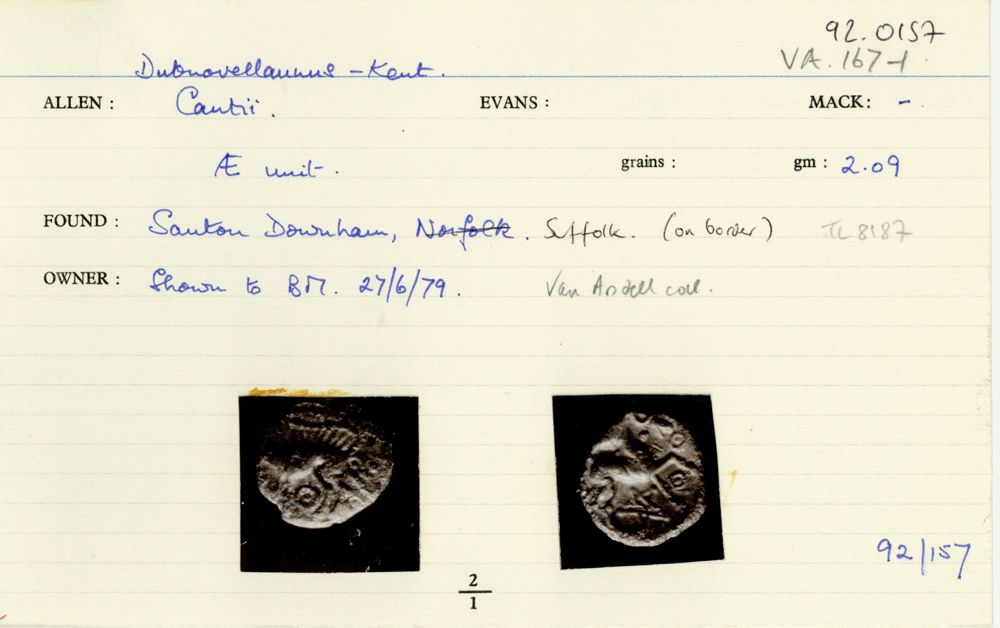 92.0157
VA. 167-1
Dubnovellaunus - Kent.
ALLEN : Cantii. EVANS : MACK: -
Æ unit. grains : gm : 2.09
FOUND : Santon Downham, Norfolk. Suffolk. (on border) TL8187
OWNER : Shown to BM. 27/6/79. Van Arsdell coll.
92/157
2
1